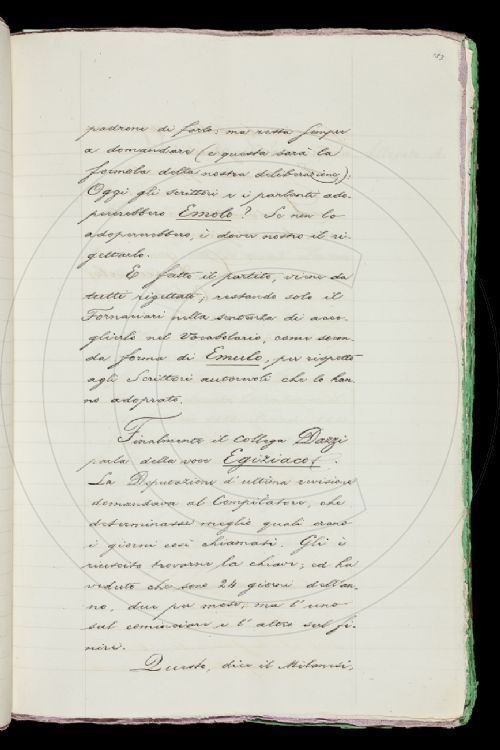 padrone di farlo; ma resta sempre
a domandare (e questa sarà la
formola della nostra deliberazione):
Oggi gli scrittori e i parlanti ado-
pererebbero Emolo? Se non lo
adopererebbero, è dover nostro il ri-
gettarlo.
E fatto il partito, viene da
tutti rigettato; restando solo il
Fornaciari nella sentenza di acco-
glierlo nel Vocabolario, come secon-
da forma di Emulo, per rispetto
agli Scrittori autorevoli che lo han-
no adoprato.
Finalmente il Collega Dazzi
parla della voce Egiziaco.
La Deputazione d'ultima revisione
domandava al Compilatore, che
determinasse meglio quali erano
i giorni così chiamati. Gli è
riuscito trovarne la chiave; ed ha
veduto che sono 24 giorni dell'an-
no, due per mese; ma l'uno
sul cominciare e l'altro sul fi-
nire.
Questo, dice il Milanesi,